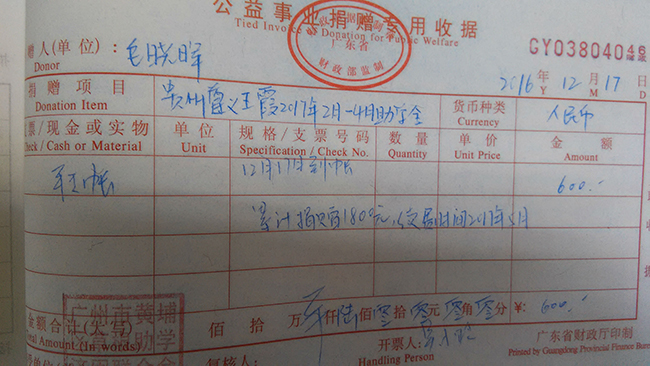 公益事业捐赠专用收据
Tied Invoice Donation for Public Welfare
广东省
财政部监制
GY03804046
赠人(单位): 毛晓晖
Donor
2016年 12月 17日
Y M D
捐赠项目 贵州遵义王霞2017年2月-4月助学金 货币种类 人民币
Donation Item Currency
票/现金或实物 单位 规格/支票号码 数量 单价 金额
Check / Cash or Material Unit Specification / Check No. Quantity Unit Price Amount
12月17日到帐
600.-
累计捐资1800元,
2017年5月
金额合计(大写) 佰 拾 万 仟陆佰零拾零元零角零分 ¥: 600.-
Total Amount (In words)
广州市黄埔
助学
复核人: 开票人:
Handling Person
广东省财政厅印制
Printed by Guangdong Provincial Finance Bureau